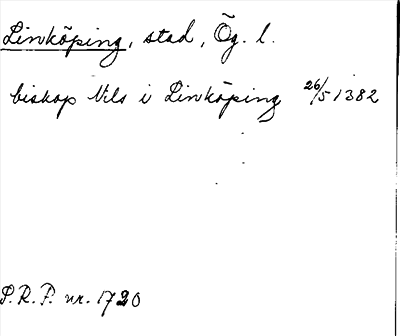 Linköping, stad, Ög. l.
biskop Nils i Linköping 26/5 1382
P.R.P. nr. 1720